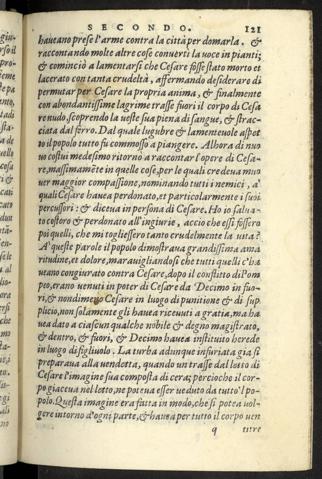 SECONDO. 121
haveano prese l'arme contro la città per domarla, &
raccontando molte altre cose converti la voce in pianti;
& cominciò a lamentarsi che Cesare fosse stato morto et
lacerato con tanta crudeltà, affermando desiderare di
permutar per Cesare la propria anima, & finalmente
con abondantissime lagrime trasse fuori il corpo di Cesa
re nudo, scoprendo la veste sua piena di sangue, & strac-
ciata dal ferro. Dal quale lugubre & lamentevole aspet
to il popolo tutto fu commosso a piangere. Alhora di nuo
vo costui medesimo ritorno a raccontar l'opere di Cesa-
re, massimamēte in quelle cose, per le quali credeva muo
ver maggior compassione, nominando tutti i nemici, a'
quali Cesare havea perdonato, et particolarmente i suoi
percussori: & diceva in persona di Cesare. Ho io salva-
to costoro & perdonato all'ingiurie, accio che essi fossero
poi quelli, che mi togliessero tanto crudelmente la vita?
A' queste parole il popolo dimostrava grandissima ama
ritudine, et dolore, maravigliandosi che tutti quelli c'ha
veano congiurato contra Cesare, dopo il conflitto di Pom
peo, erano venuti in poter di Cesare da Decimo in fuo-
ri, & nondimeno Cesare in luogo di punitione & di sup
plicio, non solamente gli havea ricevuti a gratia, ma ha
vea dato a ciascun qualche nobile & degno magistrato,
& dentro, & fuori, & Decimo havea instituito herede
in luogo di figliuolo. La turba adunque infuriata gia si
preparava alla vendetta, quando un trasse dal letto di
Cesare l'imagine sua composta di cera; percioche il cor-
po giaceva nel letto, ne poteva esser veduto da tutto 'l po-
polo. Questa imagine era fatta in modo, che si potea vol-
gere intorno d'ogni parte, & havea per tutto il corpo ven
q titre